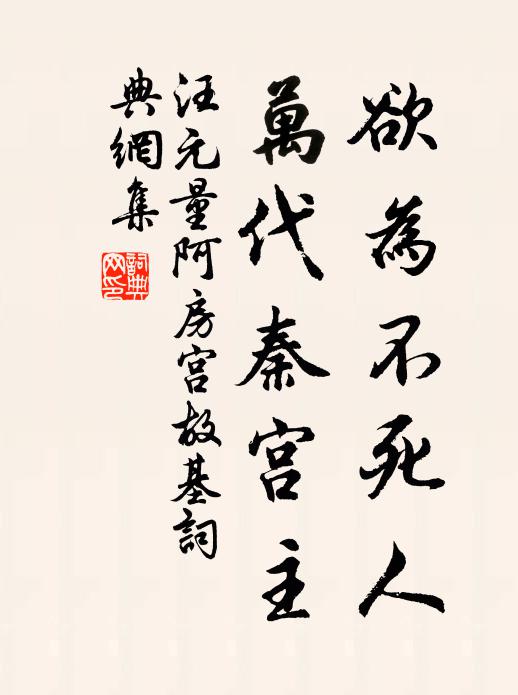 欲為不死人
萬代秦宫主
汪元量阿房宫故基詞
典網集
詞典网印